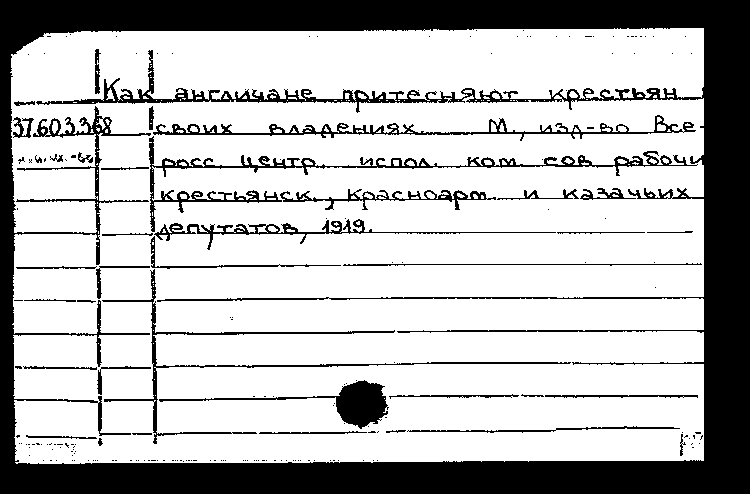 Как англичане притесняют крестьян
37.60.3.368 своих владениях. М., изд-во Все-
росс. центр. испол. ком. сов. рабочи
крестьянск., красноарм. и казачьих
депутатов, 1919.